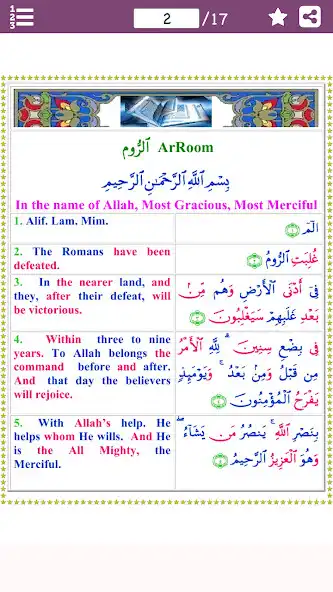 1
2
3
2 /17
الرُّوم ArRoom
بِسْمِ اللَّهِ الرَّحْمَٰنِ الرَّحِيمِ
In the name of Allah, Most Gracious, Most Merciful
1. Alif. Lam. Mim.
الٓمٓ ١
2. The Romans have been
defeated.
غُلِبَتِ ٱلرُّومُ ٢
3. In the nearer land, and
they, after their defeat, will
be victorious.
فِىٓ أَدْنَى ٱلْأَرْضِ وَهُم مِّنۢ
بَعْدِ غَلَبِهِمْ سَيَغْلِبُونَ ٣
4. Within three to nine
years. To Allah belongs the
command before and after.
And that day the believers
will rejoice.
فِى بِضْعِ سِنِينَ ۗ لِلَّهِ ٱلْأَمْرُ
مِن قَبْلُ وَمِنۢ بَعْدُ ۚ وَيَوْمَئِذٍ
يَفْرَحُ ٱلْمُؤْمِنُونَ ٤
5. With Allah’s help. He
helps whom He wills. And He
is the All Mighty, the
Merciful.
بِنَصْرِ ٱللَّهِ ۚ يَنصُرُ مَن يَشَآءُ ۖ
وَهُوَ ٱلْعَزِيزُ ٱلرَّحِيمُ ٥